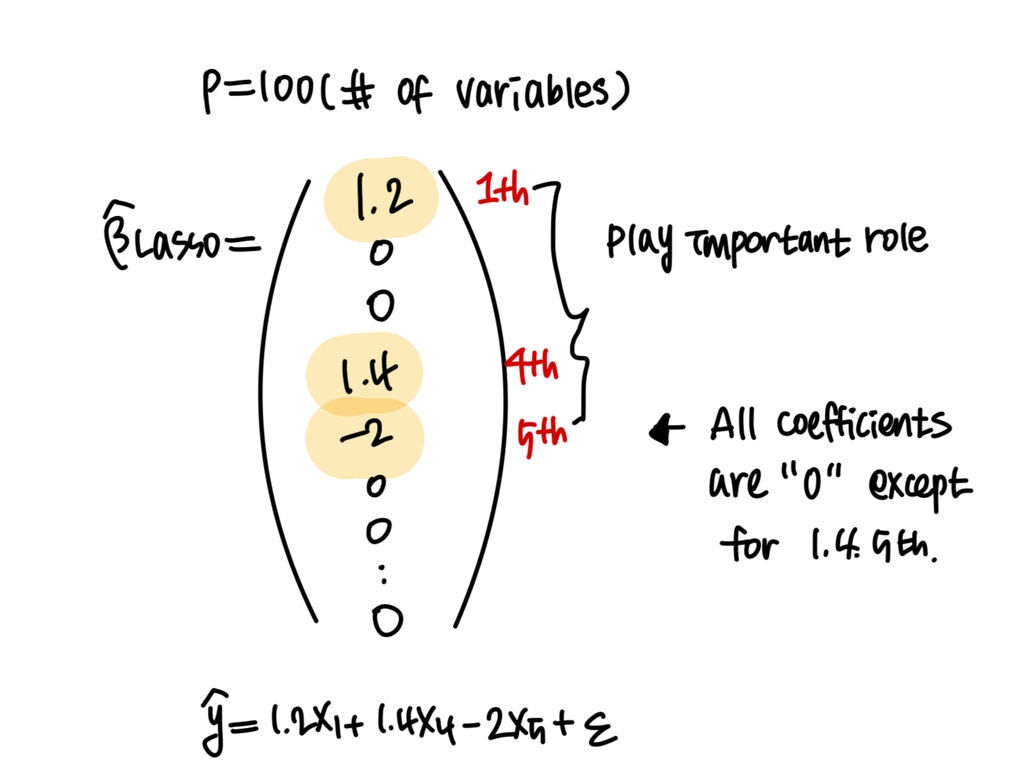 P=100(# of variables)
β̂Lasso=
1.2
0
0
1.4
-2
0
0
:
0
1th
4th
5th
Play Important role
← All coefficients
are "0" except
for 1.4.5th.
ŷ=1.2X₁+1.4X₄-2X₅+ε